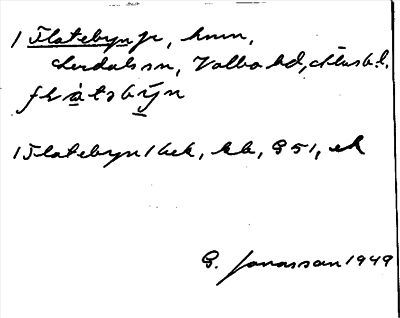 1 Flatebyn jr, hmn,
Lerdals sn, Valbo hd, Älvsb.l.
flàtəbýn
1 Flatebyn 1 bek, kb, G 51, ek
G. Jonasson 1949